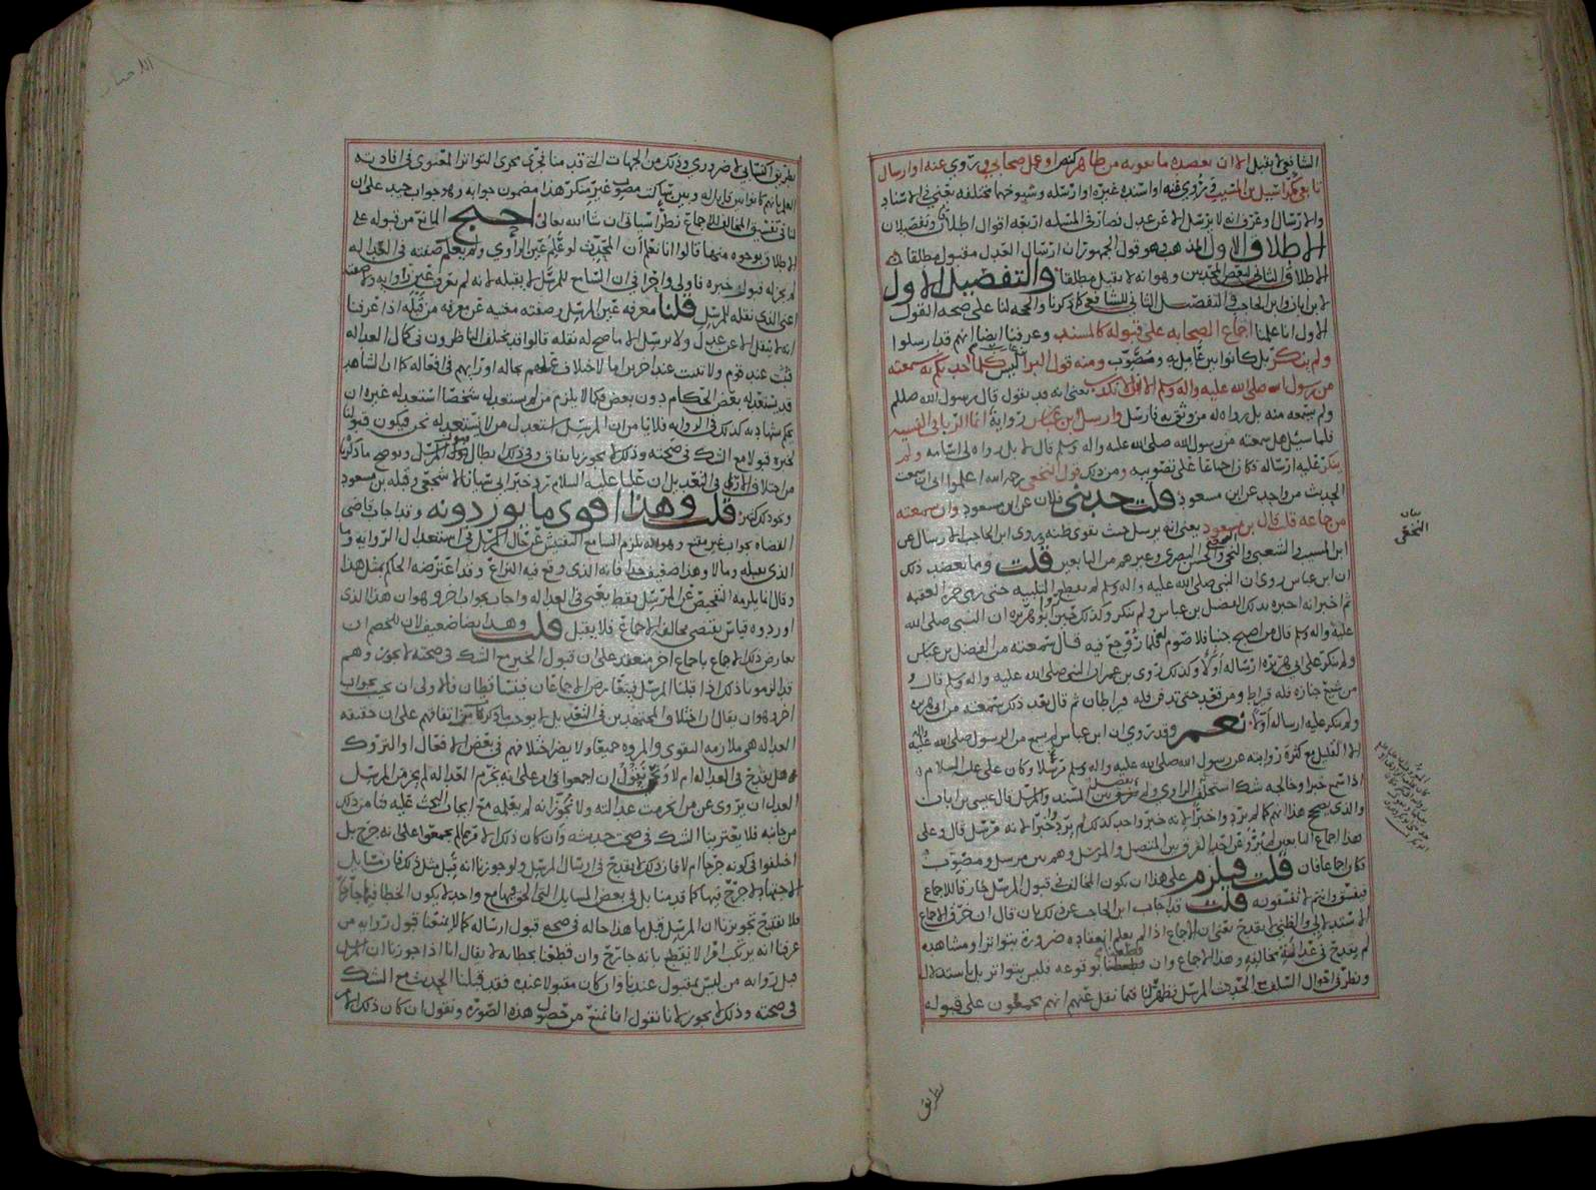 الشافعي لا يقبل الا ان يعضده ما يقويه من ظاهر او عمل صحابي او روي عنه او ارسال
تابعي كمراسيل ابن المسيب او اسنده غيره او ارسله وشيوخهما مختلفه يعني في الاسناد
والارسال او عرف انه لا يرسل الا عن عدل فصار في المسئله اربعه اقوال اطلاقان وتفصيلان
الاطلاق الاول المذهب وهو قول الجمهور ان ارسال العدل مقبول مطلقا
الاطلاق الثاني لبعض المحدثين وهو انه لا يقبل مطلقا والتفصيل الاول
لابن ابان وابن الحاجب والتفصيل الثاني للشافعي كما ذكرنا والحجه لنا على صحه القول
الاول انا علمنا اجماع الصحابه على قبوله كالمسند وعرفنا ايضا انهم قد ارسلوا
ولم ينكر بل كانوا بين عامل به ومصوب ومنه قول البرا ليس كلما احدثكم به سمعته
من رسول الله صلى الله عليه واله وسلم الا انا لا نكذب يعني انه قد يقول قال رسول الله صللم
ولم يسمعه منه بل رواه له من وثق به فارسل وارسل ابن عباس رواية انما الربا في النسيه
فلما سئل هل سمعته من رسول الله صلى الله عليه واله وسلم قال لا بل رواه لي اسامه ولم
ينكر عليه ارساله فكان اجماعا على تصويبه ومن ذلك قول النخعي رحمه الله اعلموا اني ان سمعت
الحديث من واحد عن ابن مسعود قلت حدثني فلان عن ابن مسعود وان سمعته
من جماعه قلت قال ابن مسعود يعني انه يرسل حيث يقوى ظنه وروى ابن الحاجب الارسال عن
ابن المسيب والشعبي والنخعي والحسن البصري وغيرهم من التابعين قلت ومما يعضد ذلك
ان ابن عباس روى ان النبي صلى الله عليه واله وسلم لم يقطع التلبيه حتى رمى جمرة العقبه
ثم اخبر انه اخبره بذلك الفضل بن عباس ولم ينكر وكذلك ابو هريره ان النبي صلى الله
عليه واله وسلم قال من اصبح جنبا فلا صوم له فلما روجع فيه قال سمعته من الفضل بن عباس
ولم ينكر على ابي هريره ارساله اولا وكذلك روى بن عمر ان النبي صلى الله عليه واله وسلم قال
من شيع جنازه فله قيراط ومن قعد حتى تدفن فله قيراطان ثم قال بعد ذلك سمعته من ابي هريره
ولم ينكر عليه ارساله اولا نعم وقد روي ان ابن عباس لم يسمع من الرسول صلى الله عليه واله
الا القليل مع كثرة روايته عن رسول الله صلى الله عليه واله وسلم مرسلا وكان علي عليه السلام
اذا سمع خبرا وخالجه شك استحلف الراوي ولم يفصل بين المسند والمرسل قال عيسى بن ابان
والذي يصحح هذا انهم كما لم يردوا خبرا لانه خبر واحد كذلك لم يردوا خبرا لانه مرسل قال وعلى
هذا اجماع التابعين لم يؤثر عن احد الفرق بين المتصل والمرسل وهم بين مرسل ومصوب
فكان اجماعا فان قلت فيلزم على هذا ان يكون المخالف في قبول المرسل خارقا للاجماع
فيفسق وانتم لا تفسقونه قلت قد اجاب ابن الحاجب عن ذلك بان قال ان خرق الاجماع
الاستدلالي والظني لا يقدح يعني ان الاجماع اذا لم يعلم انعقاده ضرورة بتواتر او مشاهده
لم يقدح في عدالة مخالفه وهذا الاجماع وان قطعنا بوقوعه فليس بتواتر بل باستدلال
ونظر في احوال السلف الحديث المرسل فظهر لنا فيما نقل عنهم انهم يجمعون على قبوله
بيان
النخعي
بطريق
بطريق اكتسابي لا ضروري وذلك من الجهات التي قدمنا تجري مجرى التواتر المعنوي في افادته
العلم بانهم كانوا بين قابل له وبين ساكت مصوب غير منكر هذا مضمون جوابه وهو جواب جيد على ان
لنا في تفسيق المخالف للاجماع نظرا سياتي ان شا الله تعالى احتج المانع من قبوله على
الاطلاق بوجوه منها قالوا انا نعلم ان المحدث لو علم عين الراوي ولم يعلم صفته في العداله
لم يجز له قبول خبره فاولى واحرى في ان السامع للمرسل لا يقبله لانه لم يعرف عين راويه ولا صفته
اعني الذي نقله للمرسل قلنا معرفه عين المرسل وصفته مغنيه عن معرفه من قبله اذا عرفنا
انه لا ينقل الا عن عدل ولا يرسل الا ما صح له نقله قالوا قد يختلف الناظرون في كمال العداله
فثبت عند قوم ولا تثبت عند اخرين اما لاختلاف علمهم بحاله او رايهم في افعاله كما ان الشاهد
قد يستعدله بعض الحكام دون بعض فكما لا يلزم من لم يستعدله شخصا استعدله غيره ان
يحكم بشهادته كذلك في الروايه فلا يامن ان المرسل استعدل من لا نستعدله نحن فيكون قبولنا
لخبره قبولا مع الشك في صحته وذلك لا يجوز باتفاق وفي ذلك ابطال قبول المرسل ويوضح ما ذكرنا
من اختلاف الاراء في التعديل ان عليا عليه السلام ترك خبر ابي سنان الاشجعي وقبله بن مسعود
ونحو ذلك كثير قلت وهذا اقوى ما يوردونه وقد اجاب قاضي
القضاه بجواب غير مقنع وهو انه يلزم السامع التفتيش عن حال المرسل في استعدال الرواية وما
الذي يقبله وما لا وهذا ضعيف جدا فانه الذي وقع فيه النزاع وقد اعترضه الحاكم بمثل هذا
وقال انما يلزمه التفحص عن المرسل فقط يعني في العداله واجاب بجواب اخر وهو ان هذا الذي
اوردوه قياس يقتضي مخالفه الاجماع فلا يقبل قلت وهذا ايضا ضعيف لان للخصم ان
يعارض ذلك الاجماع باجماع اخر منعقد على ان قبول الخبر مع الشك في صحته لا يجوز وهم
قد الزمونا ذلك اذا قبلنا المرسل فيتعارض الاجماعان فيتساقطان فالاولى ان يجيب بجواب
اخر وهو ان يقال ان اختلاف المجتهدين في التعديل لا يوجب ما ذكرتم اتفاقهم على ان حقيقه
العداله هي ملازمه التقوى والمروه جميعا ولا يضر اختلافهم في بعض الافعال او التروك
هل يقدح في العداله ام لا ونحن نقول ان اجمعوا في امر على انه يخرم العداله لم يجز من المرسل
العدل ان يروي عن من انخرمت عدالته ولا تجوز انه لم يعلمه مع ايجاب البحث عليه فنامن ذلك
من جانبه فلا يعترينا الشك في صحة حديثه وان كان ذلك الامر مما لم يجمعوا على انه جرح بل
اختلفوا في كونه جرحا ام لا فان ذلك لا يقدح في ارسال المرسل ولو جوزنا انه قبل مثل ذلك فان مسايل
الاجتهاد لا جرح فيها كما قدمنا بل في بعض المسايل التي الحق فيها مع واحد لا يكون الخطا فيها جارحا
فلا يقدح تجويزنا ان المرسل قبل ما هذا حاله في صحة قبول ارساله كما لا يمنعنا قبول رواية من
عرفنا انه يرتكب امرا لا نقطع بانه جارح وان قطعنا بخطائه لا يقال انا اذا جوزنا ان المرسل
قبل روايه من ليس بمقبول عندنا وان كان مقبولا عنده فقد قبلنا الحديث مع الشك
في صحته وذلك لا يجوز لانا نقول انا نمنع من حصول هذه الصورة ونقول ان كان ذلك الامر